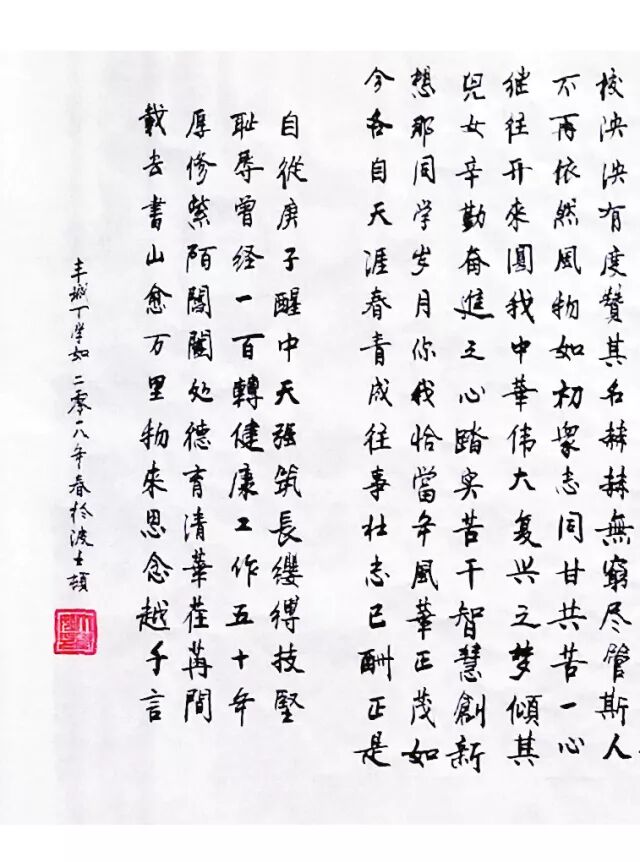 校泱泱有度贊其名赫赫無窮尽管斯人
不再依然風物如初眾志同甘共苦一心
继往开來圆我中華伟大复兴之梦傾其
兒女辛勤奋進之心踏实苦干智慧創新
想那同学岁月你我恰當年風華正茂如
今各自天涯春青成往事壮志已酬正是
自從庚子醒中天强筑長纓缚技堅
耻辱曾经一百轉健康工作五十年
厚修紫陌闊處德育清華荏苒間
載去書山愈万里物来思念越千言
丰城丁学如二零一八年春於波士頓